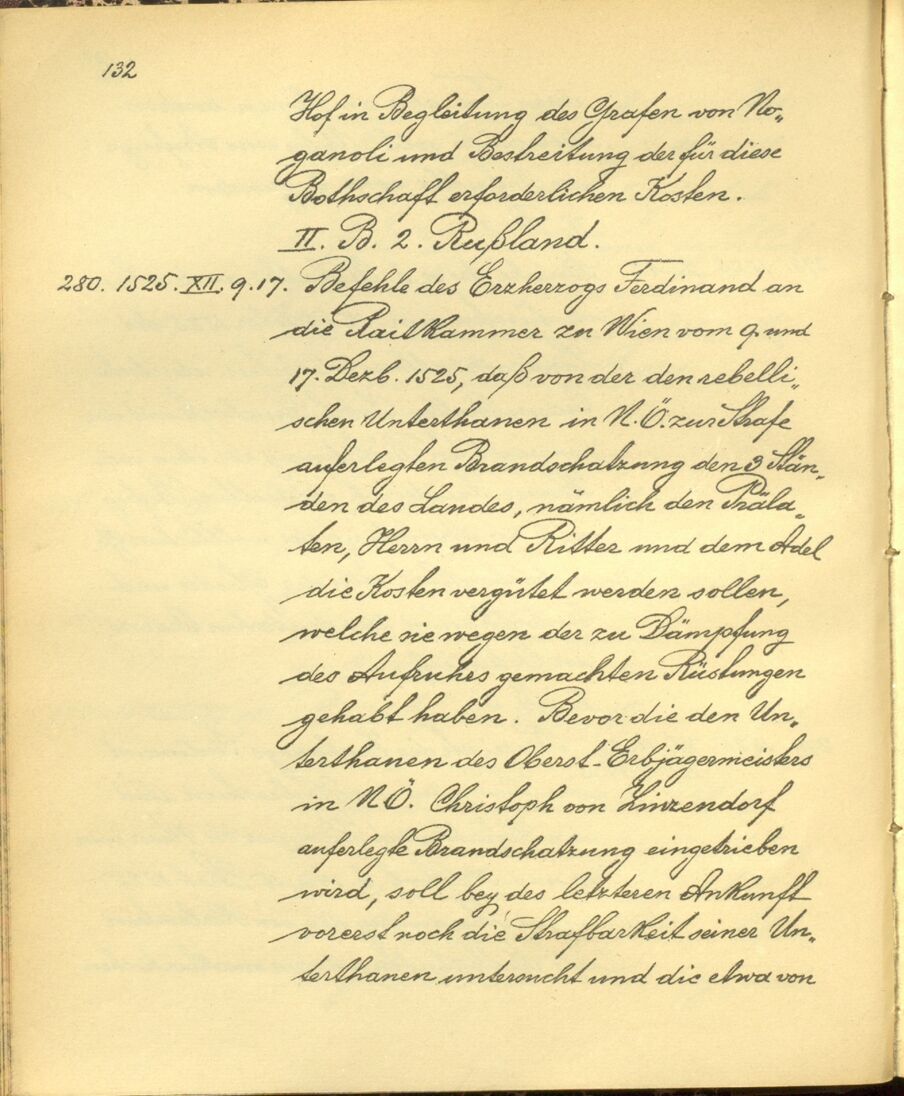 132
Hof in Begleitung des Grafen von No„
ganoli und Bestreitung der für diese
Bothschaft erforderlichen Kosten.
II. B. 2. Rußland.
280. 1525. XII. 9.17. Befehle des Erzherzogs Ferdinand an
die Raitkammer zu Wien vom 9. und
17. Dezb. 1525, daß von der den rebelli„
schen Unterthanen in N.Ö. zur Strafe
auferlegten Brandschatzung den 3 Stän„
den des Landes, nämlich den Präla„
ten, Herrn und Ritter und dem Adel
die Kosten vergütet werden sollen,
welche sie wegen der zu Dämpfung
des Aufruhrs gemachten Rüstungen
gehabt haben. Bevor die den Un„
terthanen des Oberst-Erbjägermeisters
in N.Ö. Christoph von Zinzendorf
auferlegte Brandschatzung eingetrieben
wird, soll bey des letzteren Ankunft
vorerst noch die Strafbarkeit seiner Un„
terthanen untersucht und die etwa von